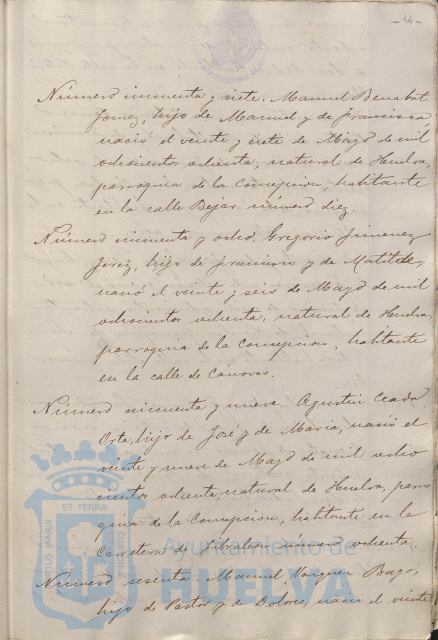 -14-
Número cincuenta y siete. Manuel Benabat
Jerez, hijo de Manuel y de Francisca
nació el veinte y siete de Mayo de mil
ochocientos ochenta, natural de Huelva,
parroquia de la Concepcion, habitante
en la calle Bejar número diez.
Número cincuenta y ocho. Gregorio Jimenez
Jerez, hijo de Francisco y de Matilde,
nació el veinte y seis de Mayo de mil
ochocientos ochenta, natural de Huelva,
parroquia de la Concepcion, habitante
en la calle de Cánovas.
Número cincuenta y nueve. Agustin Ceada
Orta, hijo de José y de Maria, nació el
veinte y nueve de Mayo de mil ocho
cientos ochenta, natural de Huelva, parro
quia de la Concepcion, habitante en la
Carretera de Gibraleon número ochenta
Número sesenta. Manuel Vazquez Bago,
hijo de Pastor y de Dolores, nació el veinte
ET TERRÆ
Ayuntamiento de
HUELVA